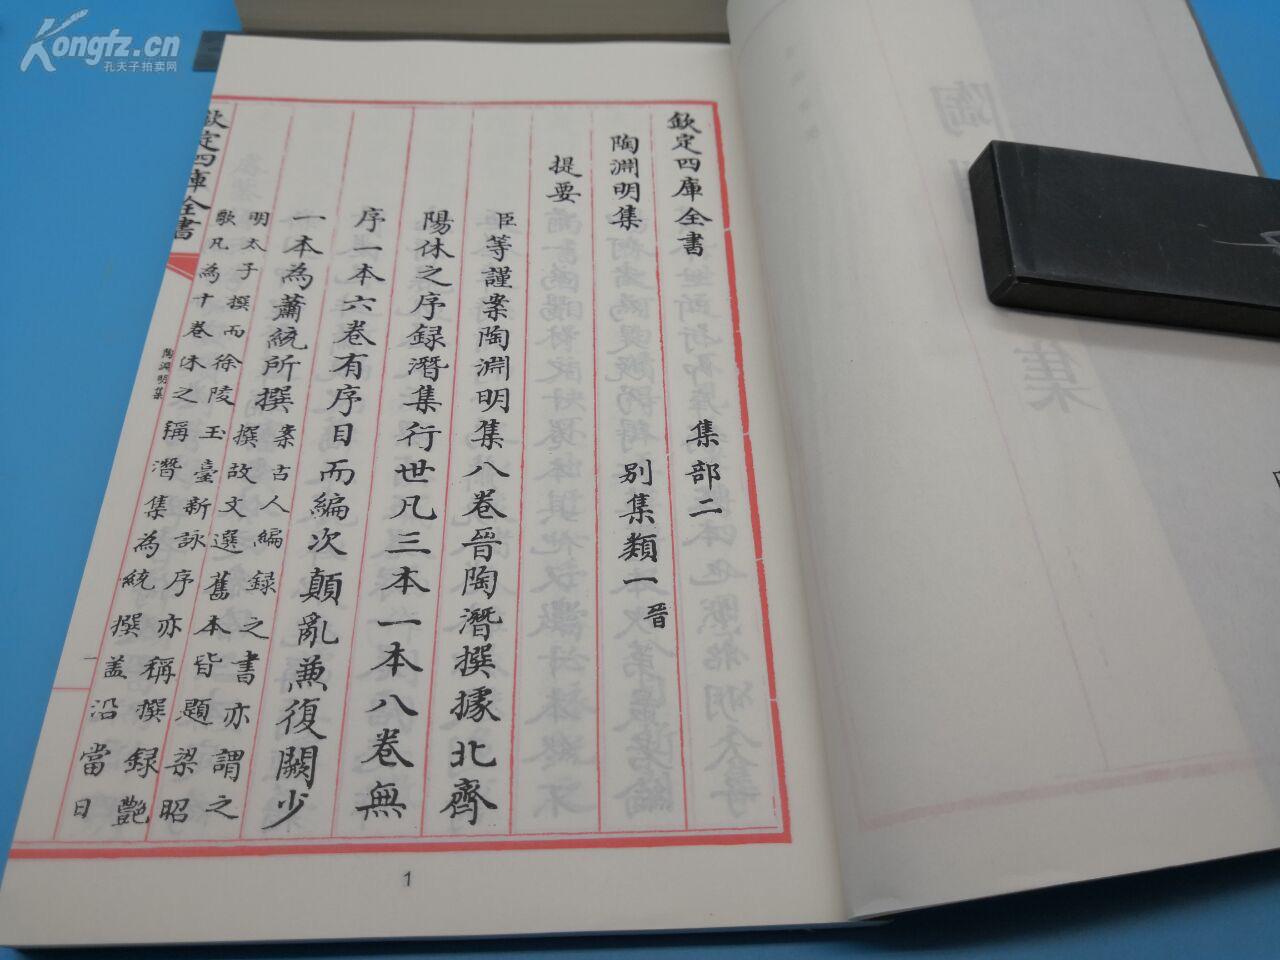 Kongfz.cn
孔夫子拍卖网
欽定四庫全書 集部二
陶淵明集 別集類一 晉
提要
臣等謹案陶淵明集八卷晉陶潛撰據北齊
陽休之序録潛集行世凡三本一本八卷無
序一本六卷有序目而編次顛亂兼復闕少
一本為蕭統所撰
案古人編録之書亦謂之
撰故文選舊本皆題梁昭
明太子撰而徐陵玉臺新詠序亦稱撰録艷
歌凡為十卷休之稱潛集為統撰盖沿當日
欽定四庫全書
陶淵明集
一
1